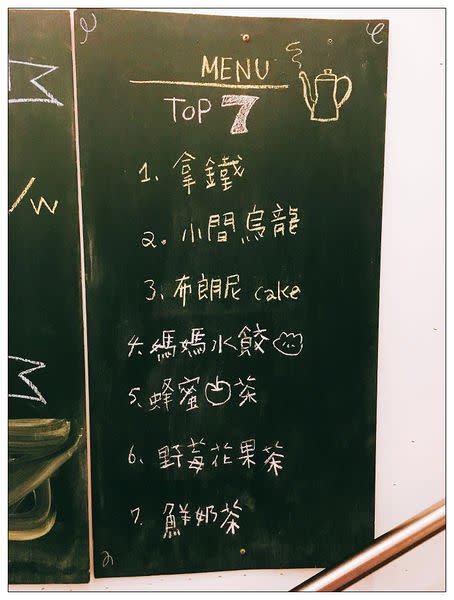 MENU
TOP 7
1. 拿鐵
2. 小間烏龍
3. 布朗尼 cake
4. 媽媽水餃
5. 蜂蜜 茶
6. 野莓花果茶
7. 鮮奶茶
/w